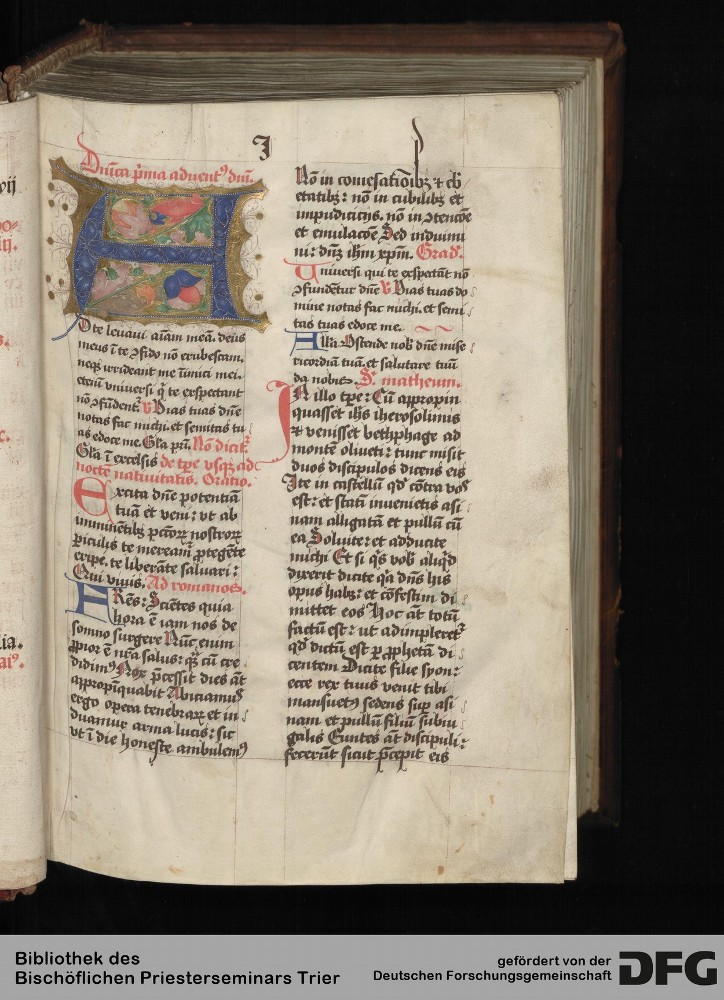 I
Dnica p̄ma aduent⁹ dni.
AD te leuaui aīam meā. deus
meus ī te ɔfido nō erubescam.
neqꝫ irrideant me inimici mei.
etenī vniuersi q̄ te exspectant
nō ɔfūdent᷑. v̄ Vias tuas dn̄e
notas fac michi. et semitas tu
as edoce me. Gl̄a pr̄i. Nō dicit᷑
Gl̄a ī excelsis de tp̄e vsqꝫ ad
noctē natiuitatis. Oratio.
Excita dn̄e potentiā
tuā et veni: vt ab
imminētibꝫ pctōꝝ nostroꝝ
ꝑiculis te meream᷑ ꝓtegēte
eripe. te liberāte saluari:
Qui viuis. Ad romanos.
FRēs: Sciētes quia
hora ē iam nos de
somno surgere Nūc enim
ꝓpior ē nr̄a salus: qꝫ cū cre
didim⁹ Nox p̄cessit dies aūt
appropīquabit Abiciamus
ergo opera tenebraꝝ et in
duamur arma lucis: sic
vt ī die honeste ambulem⁹
Nō in comesatiōibꝫ ⁊ eb̄
etatibꝫ: nō in cubilibꝫ et
impudicicijs. nō in ɔtencōe
et emulacōe Sed induimi
ni: dn̄ꝫ ih̄m xp̄m. Grad᷑.
Uniuersi qui te exspectāt nō
ɔfundētur dn̄e v̄ Vias tuas do
mine notas fac michi. et semi
tas tuas edoce me.
All̄a Ostende nob̄ dn̄e mise
ricordiā tuā. et salutare tuū
da nobis. S᷑. matheum.
IN illo tp̄e: Cū appropin
quasset ih̄s iherosolimis
⁊ venisset bethphage ad
montē oliueti: tunc misit
duos discipulos dicens eis
Ite in castellū qd̄ cōtra vos
est: et statī inuenietis asi
nam alligatā et pullū cū
ea Soluite: et adducite
michi Et si q̄s vob̄ aliq̄d
dixerit dicite qa dn̄s his
opus habꝫ: et cōfestim di
mittet eos Hoc aūt totū
factū est: ut adimpleret᷑
qd̄ dictū est ꝑ ꝓphetā di
centem Dicite filie syon:
ecce rex tuus venit tibi
mansuet⁹ sedens suꝑ asi
nam et pullū filiū subiu
galis Euntes aūt discipuli:
fecerūt sicut p̄cepit eis
vij
ij.
lia.
Bibliothek des
Bischöflichen Priesterseminars Trier
gefördert von der
Deutschen Forschungsgemeinschaft
DFG